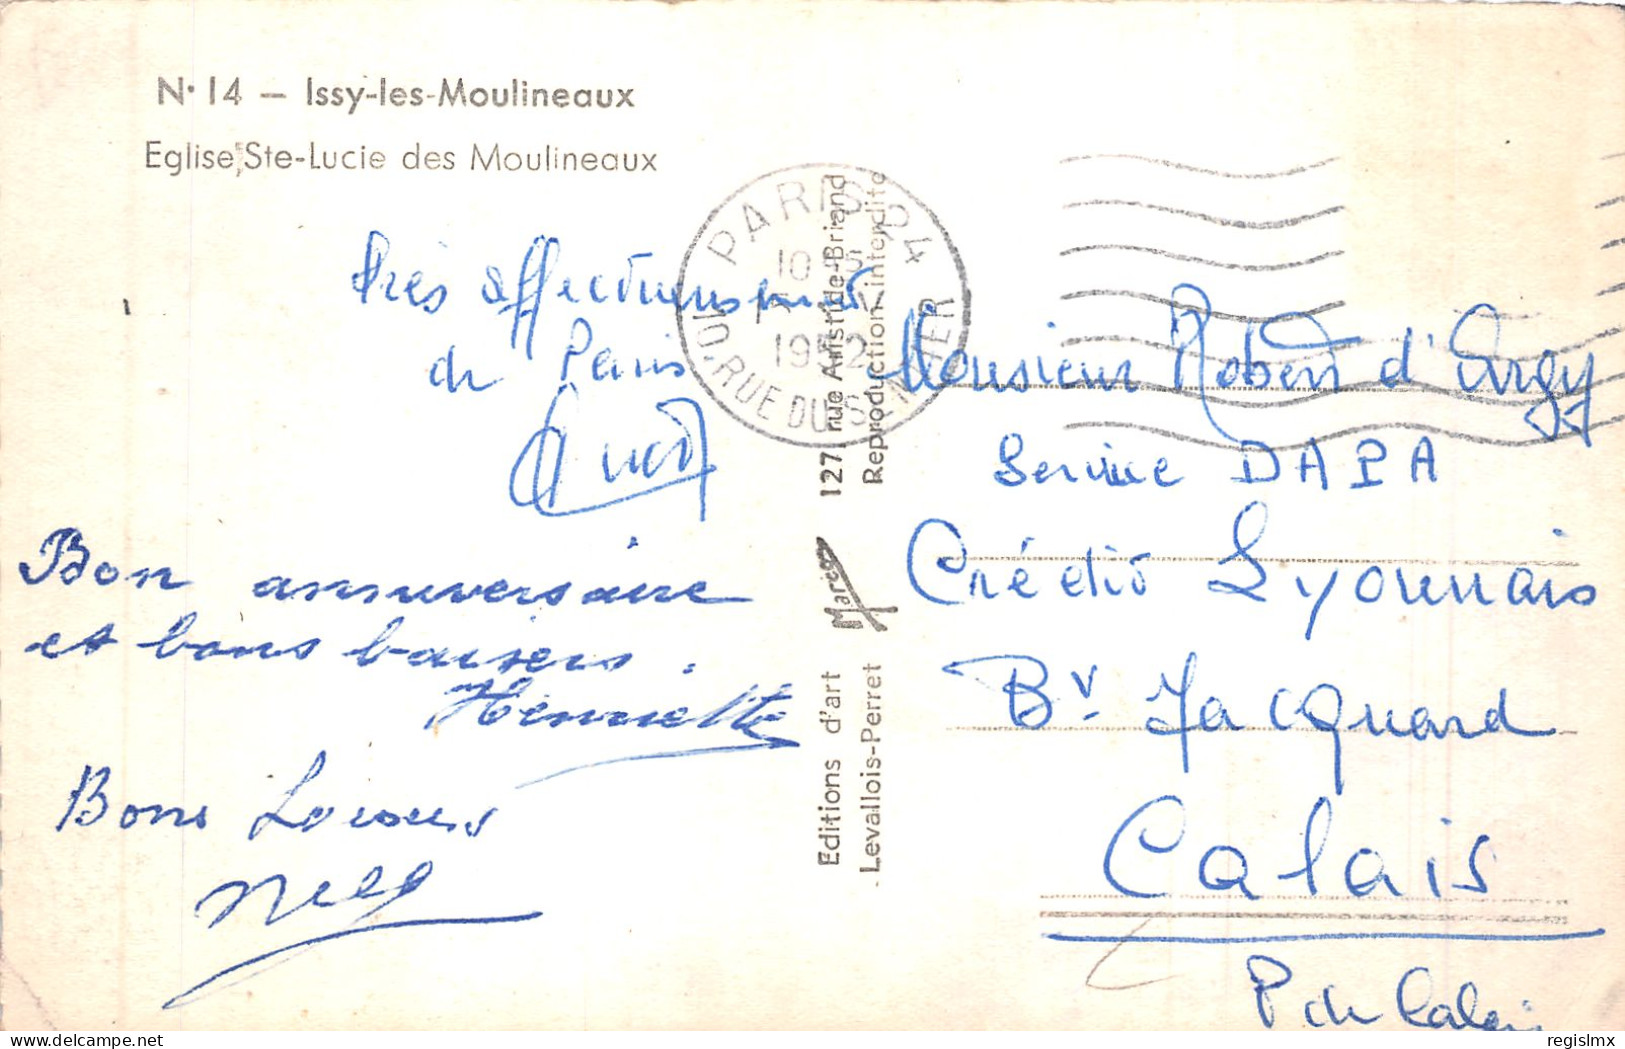 N• 14 — Issy-les-Moulineaux
Eglise Ste-Lucie des Moulineaux
très affectueusement
de Paris
Bon anniversaire
et bons baisers.
Henriette
Bons
PARIS 24
1952
RUE DU
Editions d'art Marco 127, rue Aristide-Briand
Levallois-Perret Reproduction interdite
Monsieur Robert d'
Service DAPA
Crédit Lyonnais
Bv. Jacquard
Calais
P de Calais
regislmx